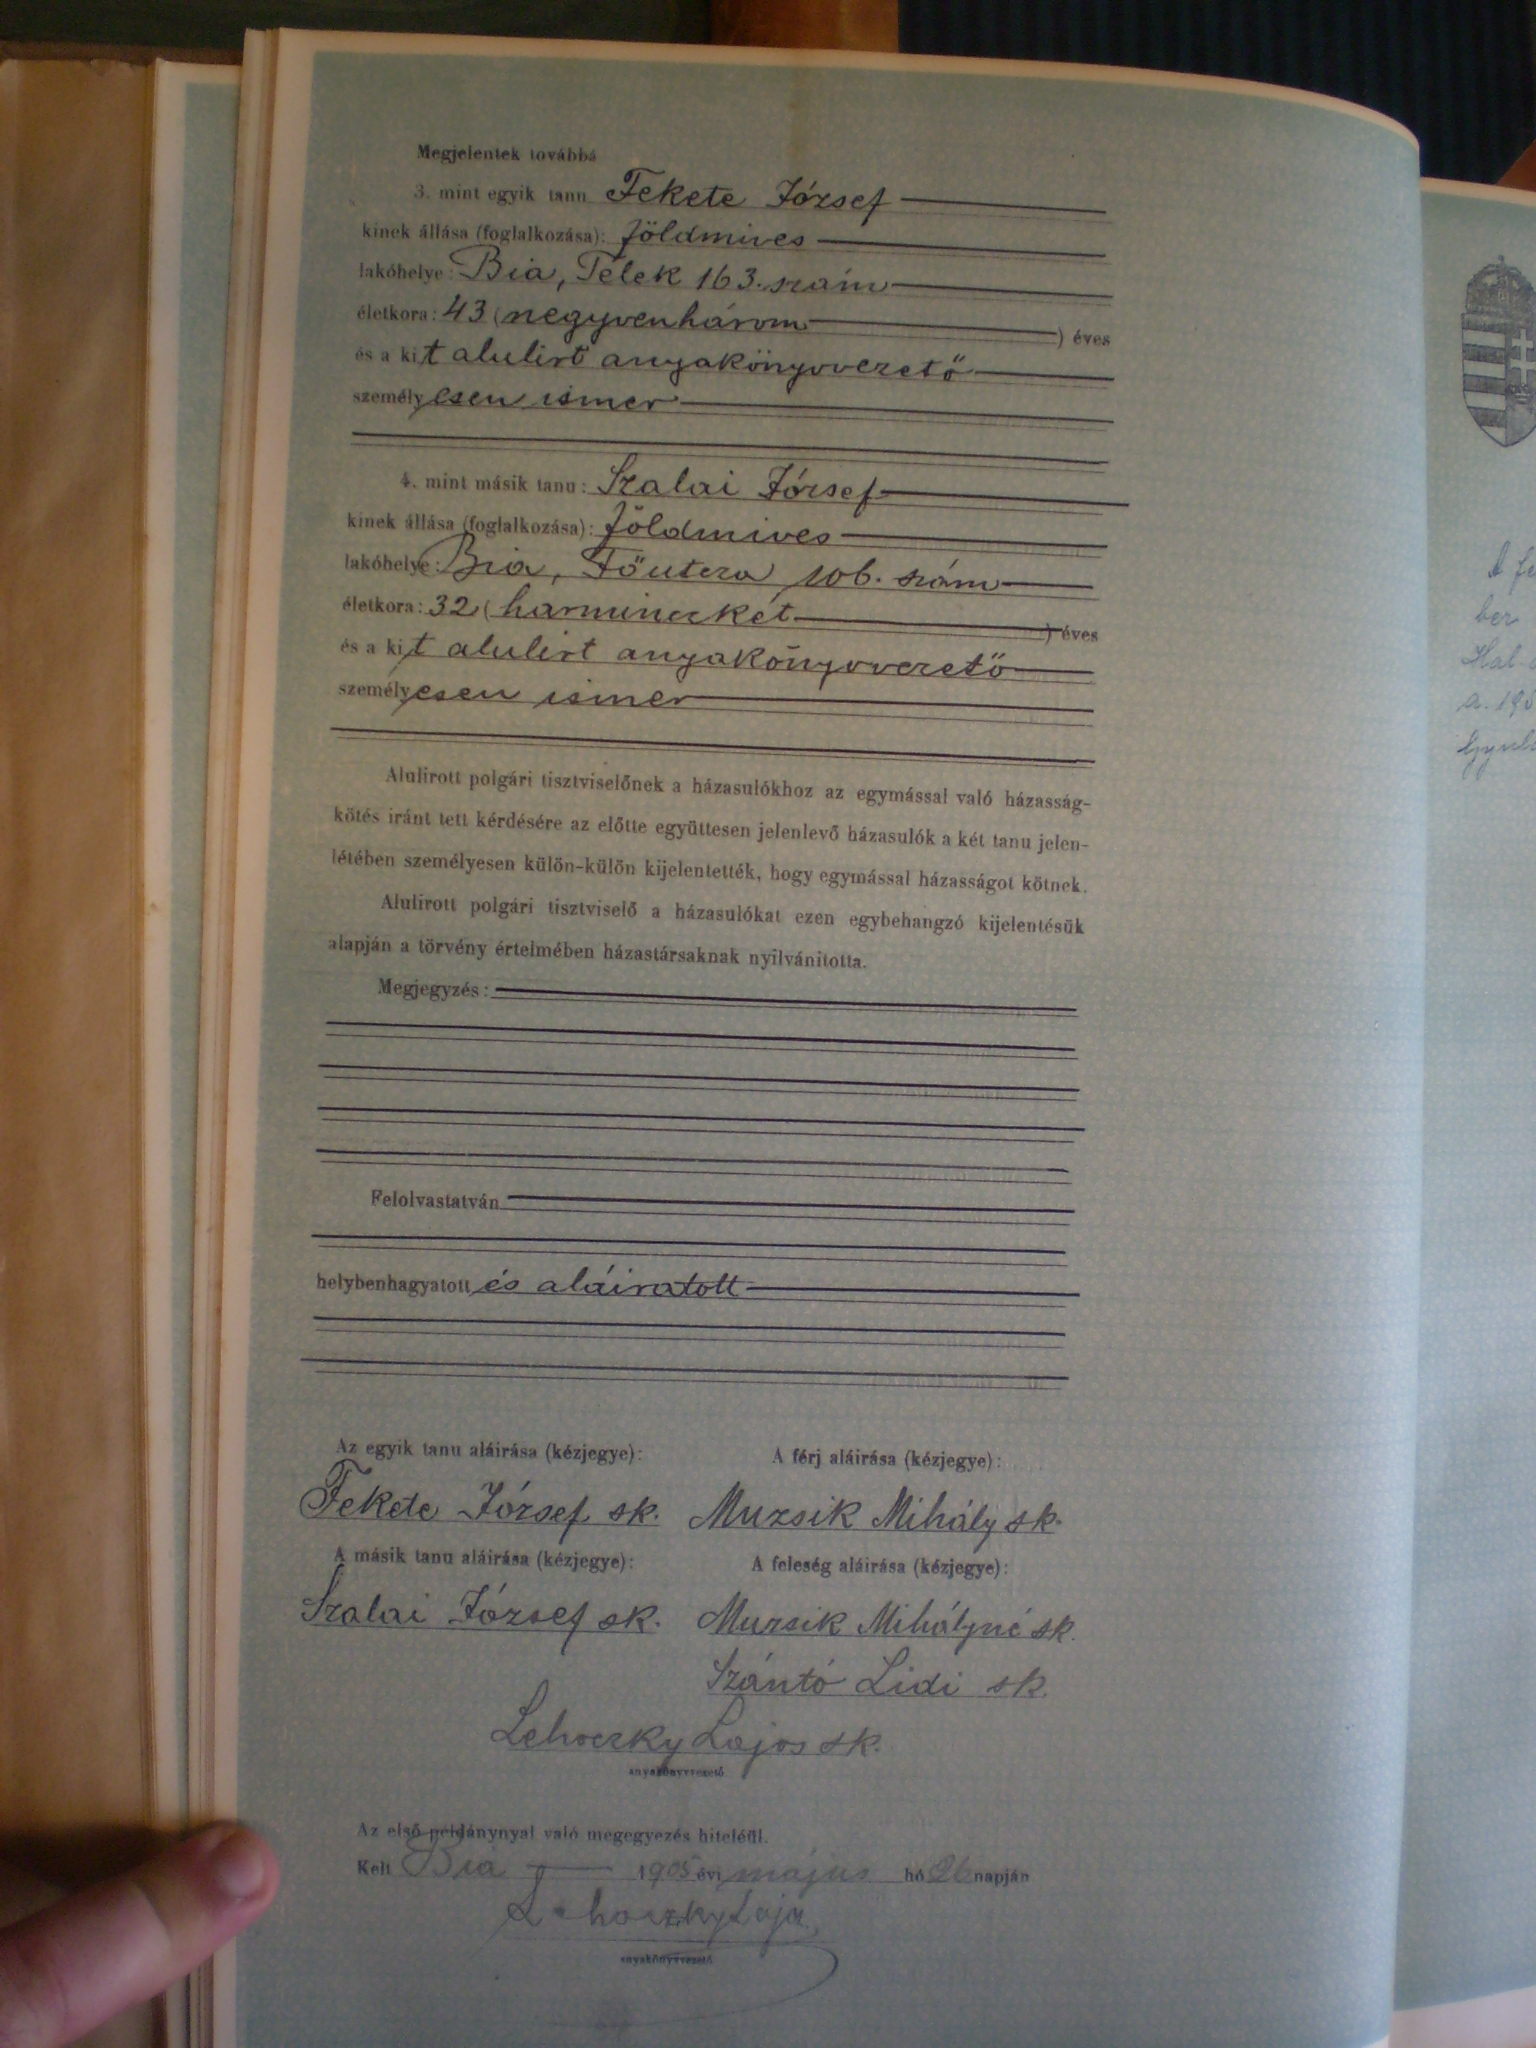 Megjelentek továbbá
3. mint egyik tanu Fekete József
kinek állása (foglalkozása): földmives
lakóhelye: Bia, Telek 163. szám
életkora: 43 (negyvenhárom) éves
és a kit alulirt anyakönyvvezető
személyesen ismer
4. mint másik tanu: Szalai József
kinek állása (foglalkozása): földmives
lakóhelye: Bia, Főutcza 106. szám
életkora: 32 (harminczkét) éves
és a kit alulirt anyakönyvvezető
személyesen ismer
Alulirott polgári tisztviselőnek a házasulókhoz az egymással való házasság-
kötés iránt tett kérdésére az előtte együttesen jelenlevő házasulók a két tanu jelen-
létében személyesen külön-külön kijelentették, hogy egymással házasságot kötnek.
Alulirott polgári tisztviselő a házasulókat ezen egybehangzó kijelentésük
alapján a törvény értelmében házastársaknak nyilvánitotta.
Megjegyzés:
Felolvastatván
helybenhagyatott és aláiratott
Az egyik tanu aláirása (kézjegye): A férj aláirása (kézjegye):
Fekete József sk. Muzsik Mihály sk.
A másik tanu aláirása (kézjegye): A feleség aláirása (kézjegye):
Szalai József sk. Muzsik Mihályné sk.
Szántó Lidi sk.
Lehoczky Lajos sk.
anyakönyvvezető
Az első példánynyal való megegyezés hiteléül.
Kelt Bia 1905 évi május hó 26 napján
Lehoczky Lajos
anyakönyvvezető
ber
a. 190